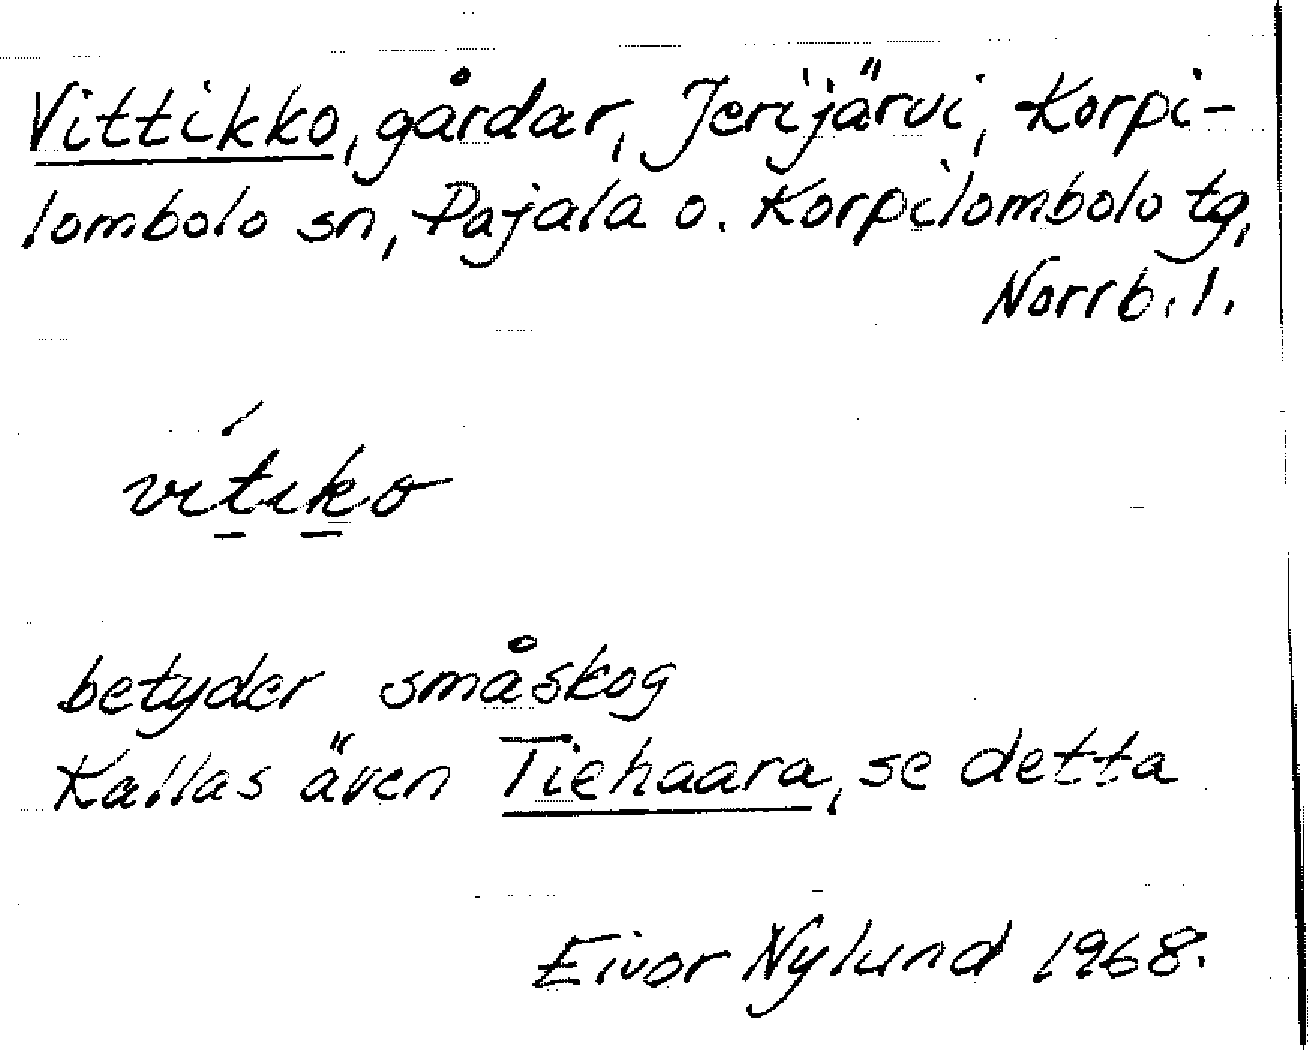 Vittikko, gårdar, Jerijärvi, Korpi-
lombolo sn, Pajala o. Korpilombolo tg,
Norrb. l.
vitiko
betyder småskog
Kallas även Tiehaara, se detta
Eivor Nylund 1968.